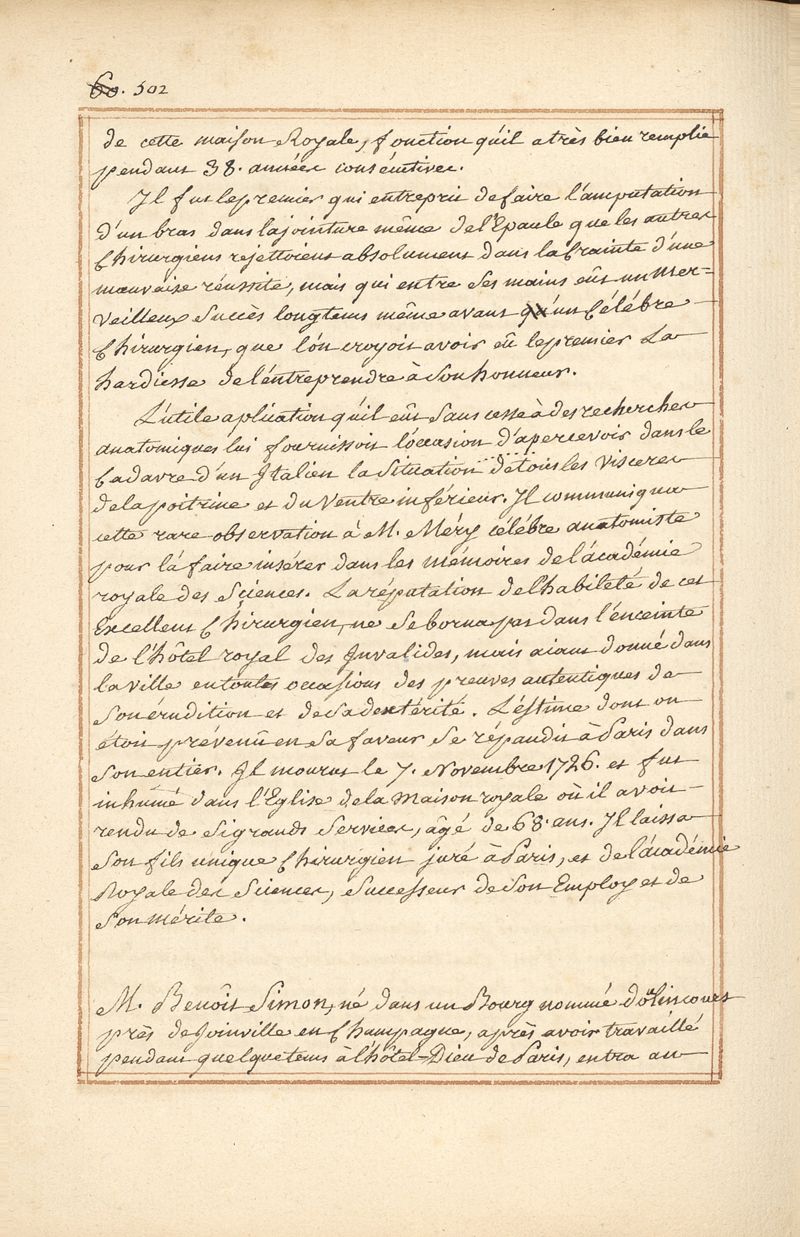 60. 502
de cette maison Royale, fonction qu'il a très bien remplie
pendant 38. années consécutives.
Il fut le premier qui entreprit de faire l'amputation
d'un bras dans la jointure même de l'Epaule que les autres
Chirurgiens rejettoient absolument dans la Crainte d'une
mauvaise réussite, mais qui entre ses mains eût un mer=
veilleux succès longtems même avant qu'un Célébre
Chirurgien, que l'on croyoit avoir eû le premier la
hardiesse de l'entreprendre à son honneur.
L'utile aplication qu'il eût sans cesse à des recherches
anatomiques lui fournisson l'occasion d'apercevoir dans le
Cadavre d'un Italien la situation de tous les visceres
de la poitrine et du Ventre inférieur. Il communiqua
cette rare observation à M. Méry célébre anatomiste
pour là faire insérer dans les mémoires de l'académie
royale des Sciences. La réputation de l'habileté de cet
Excellent Chirurgien, ne se borna pas dans l'enceinte
de l'hôtel royal des Invalides, mais aiant donné dans
la ville en toutes occasions des preuves autentiques de
son érudition et de sa dextérité. L'éstime dont on
étoit prévenû en sa faveur se répandit à Paris dans
son entier. Il mourut le 7. Novembre 1726. et fut
inhumé dans l'Eglise de la Maison royale où il avoit
rendu de si grands services, âgé de 68. ans. Il laissa
son fils unique Chirurgien juré à Paris, et de l'académie
Royale des Sciences, successeur de son Employ et de
son mérite.
M. Benoît Simon, né dans un Bourg nommé
près de Joinville en Champagne, après avoir travaillé
pendant quelque tems à l'hôtel-Dieu de Paris, entra au